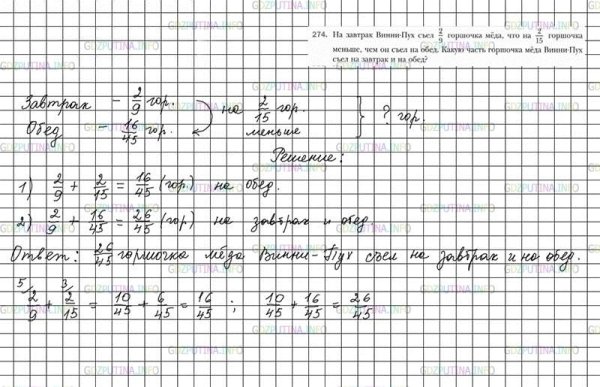 GDZPUTINA.INFO GDZPUTINA.INFO GDZPUTINA.INFO
274. На завтрак Винни-Пух съел 2/9 горшочка мёда, что на 2/15 горшочка
меньше, чем он съел на обед. Какую часть горшочка мёда Винни-Пух
съел на завтрак и на обед?
Завтрак – 2/9 гор. на 2/15 гор. } ? гор.
Обед – 16/45 гор. меньше
Решение:
1) 2/9 + 2/15 = 16/45 (гор.) на обед.
2) 2/9 + 16/45 = 26/45 (гор) на завтрак и обед.
Ответ: 26/45 гормочка мёда Винни-Пух съел на завтрак и на обед.
5/ 2/9 + 3/ 2/15 = 10/45 + 6/45 = 16/45 ; 10/45 + 16/45 = 26/45
GDZPUTINA.INFO GDZPUTINA.INFO GDZPUTINA.INFO